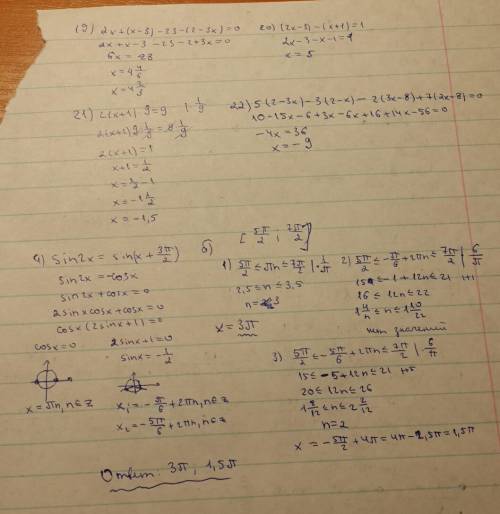 19) 2x+(x-3)-23-(2-3x)=0
2x+x-3-23-2+3x=0
6x = 28
x=4 4/6
x=4 2/3
20) (2x-3)-(x+1)=1
2x-3-x-1=1
x=5
21) 2(x+1) 9=9 | 1/9
2(x+1)9·1/9=9·1/9
2(x+1)=1
x+1=1/2
x=1/2-1
x=-1 1/2
x=-1,5
22) 5(2-3x)-3(2-x)-2(3x-8)+7(2x-8)=0
10-15x-6+3x-6x+16+14x-56=0
-4x=36
x=-9
а) sin2x= sin(x+3π/2)
sin2x=-cosx
sin2x+cosx=0
2sinxcosx+cosx=0
cosx(2sinx+1)=0
cosx=0
2sinx+1=0
sinx=-1/2
x=πn, n∈z
x₁=-π/6+2πn, n∈z
x₂=-5π/6+2πn, n∈z
б) [5π/2; 7π/2]
1) 5π/2≤πn≤7π/2 |·1/π
2,5≤n≤3,5
n=3
x=3π
2) 5π/2≤-π/6+2πn≤7π/2 | 6/π
15≤-1+12n≤21 +1
16≤12n≤22
нет значений
3) 5π/2≤-5π/6+2πn≤7π/2 | 6/π
15≤-5+12n≤21 +5
20≤12n≤26
1 8/12≤n≤2 2/12
n=2
x=-5π/2+4π=4π-2,5π=1,5π
Ответ: 3π; 1,5π